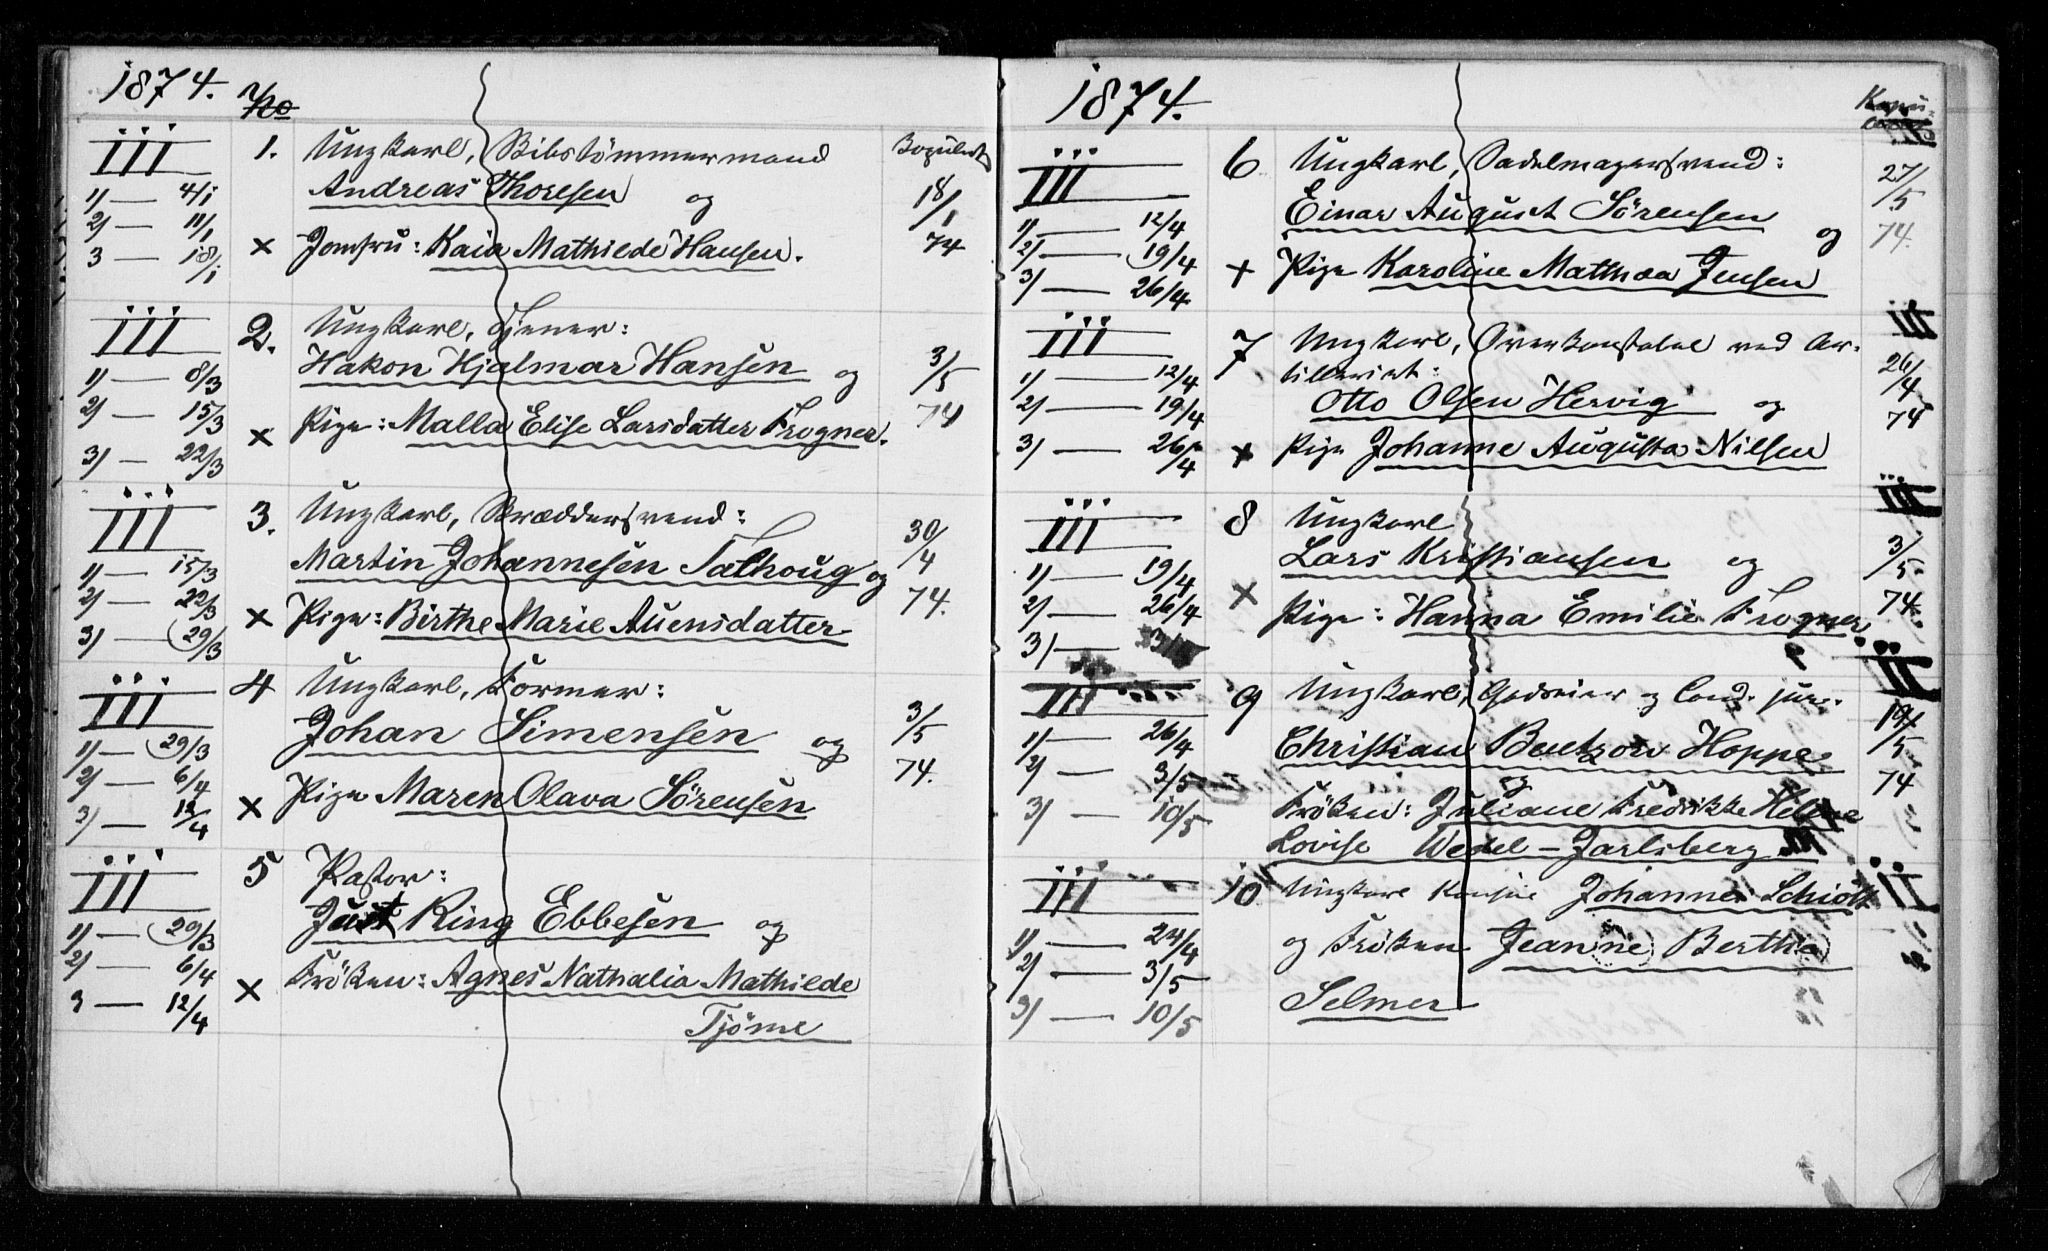 1874. No
III 1. Ungkarl, Skibstømmermand Kopuleret
1) — 4/1 Andreas Thoresen og 18/1
2) — 11/1
3 — 18/1 × Jomfru: Kaia Mathilde Hansen. 74
III 2. Ungkarl, Tjener:
1) — 8/3 Hakon Hjalmar Hansen og 3/5
2) — 15/3 × Pige: Malla Elise Larsdatter Frogner. 74
3) — 22/3
III 3. Ungkarl, Skræddersvend:
1) — 15/3 Martin Johannesen Talhoug og 30/4
2) — 22/3 × Pige: Birthe Marie Auensdatter 74.
3) — 29/3
III 4 Ungkarl, Former:
1) — 29/3 Johan Simensen og 3/5
2) — 6/4 74.
3) — 12/4 × Pige Maren Olava Sørensen
III 5 Pastor:
1) — 29/3 Just Ring Ebbesen og
2) — 6/4 × Frøken: Agnes Nathalia Mathilde
3 — 12/4 Tjöme
1874.
III 6 Ungkarl, Sadelmagersvend: 27/5
1) — 12/4 Einar August Sörensen og 74.
2) — 19/4
3) — 26/4 + Pige Karoline Mathea Jensen
III 7 Ungkarl, Overkonstabel ved Ar- III
1) — 12/4 tilleriet: 26/4
2) — 19/4 Otto Olsen Hervig og 74
3) — 26/4 + Pige Johanne Augusta Nilsen
III 8 Ungkarl III
1) — 19/4 Lars Kristiansen og 3/5.
2) — 26/4 × Pige: Hanna Emilie Frogner 74.
3) — 3/5
III 9 Ungkarl, Godseier og Cand. jur. III
1) — 26/4 Christian Bentzon Hoppe 19/5
2) — 3/5 og 74
3) — 10/5 Frøken: Juliane Fredrikke Helene
Lovise Wedel-Jarlsberg
III 10 Ungkarl Johannes Schiött III
1) — 24/4 og Frøken Jeanne Berthea
2) — 3/5
3) — 10/5 Selmer